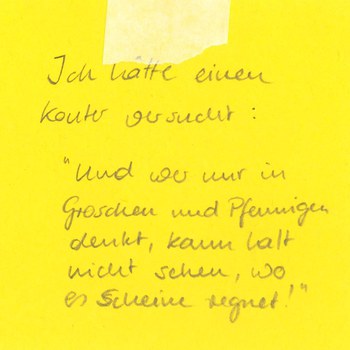 Ich hätte einen
Konter versucht:
"Und wer nur in
Groschen und Pfennigen
denkt, kann halt
nicht sehen, wo
es Scheine regnet!"